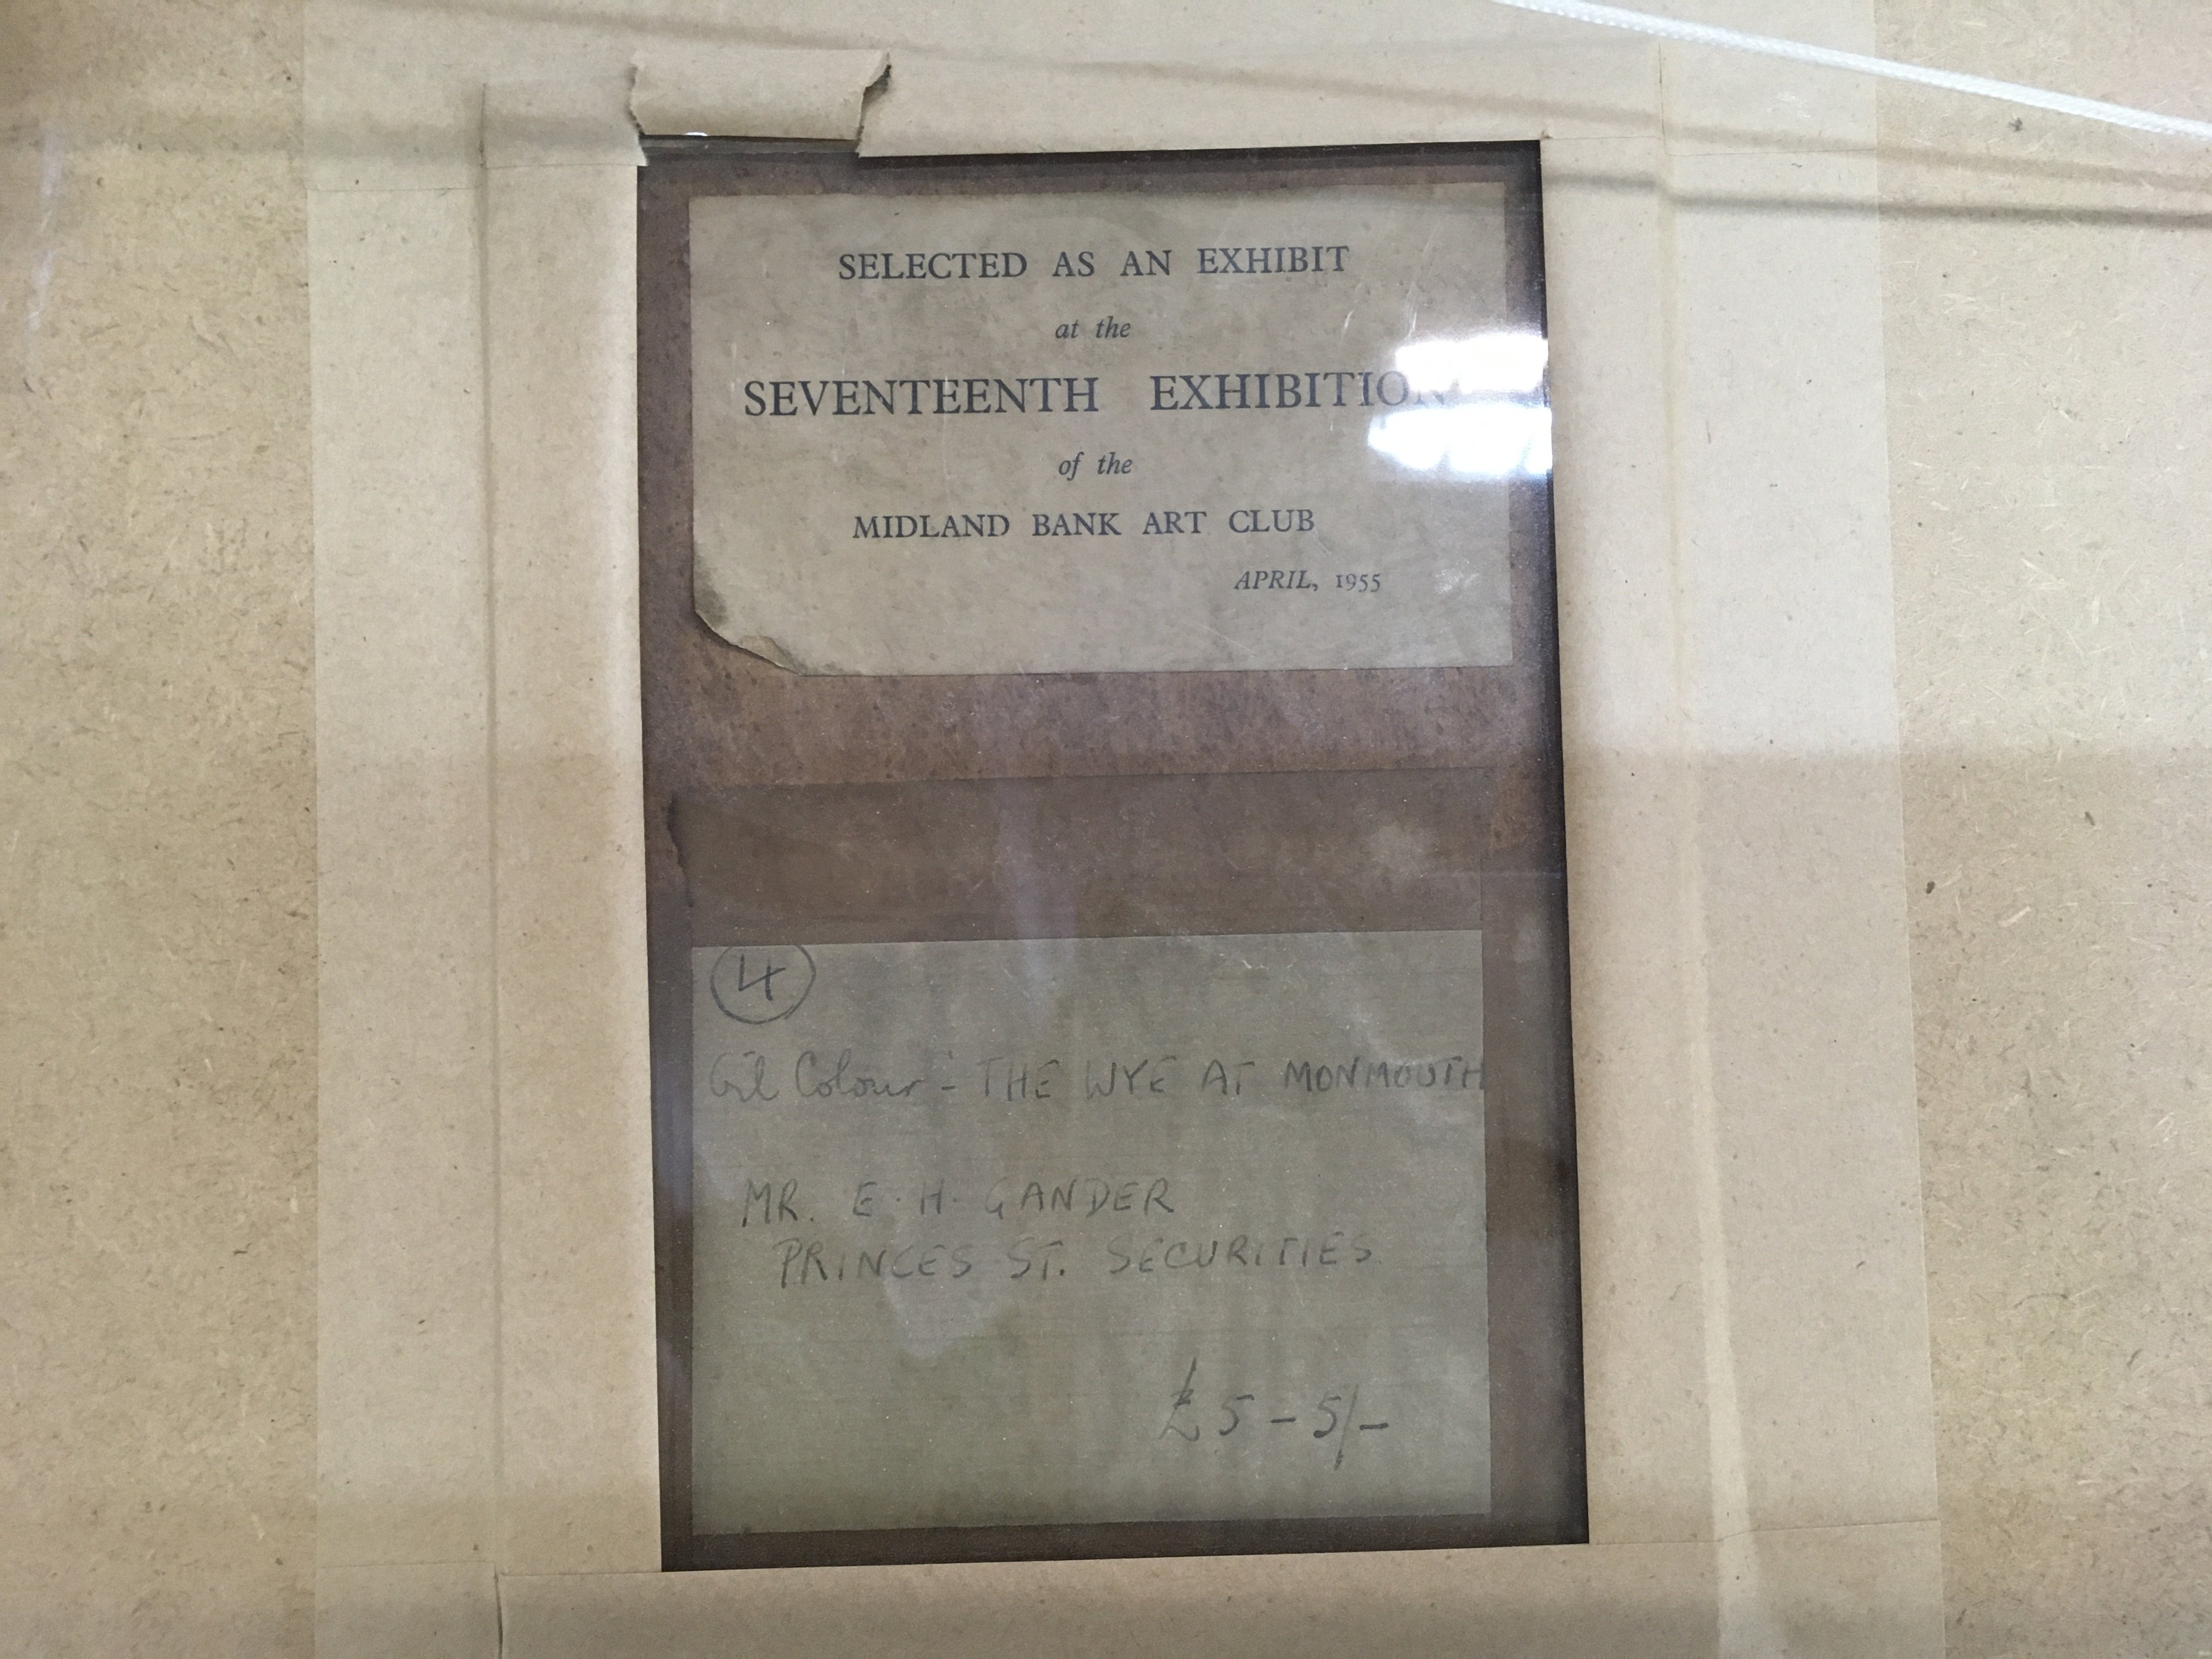 SELECTED AS AN EXHIBIT
at the
SEVENTEENTH EXHIBITION
of the
MIDLAND BANK ART CLUB
APRIL, 1955
4
Oil Colour:- THE WYE AT MONMOUTH
MR. E. H. GANDER
PRINCES ST. SECURITIES
£5-5/-